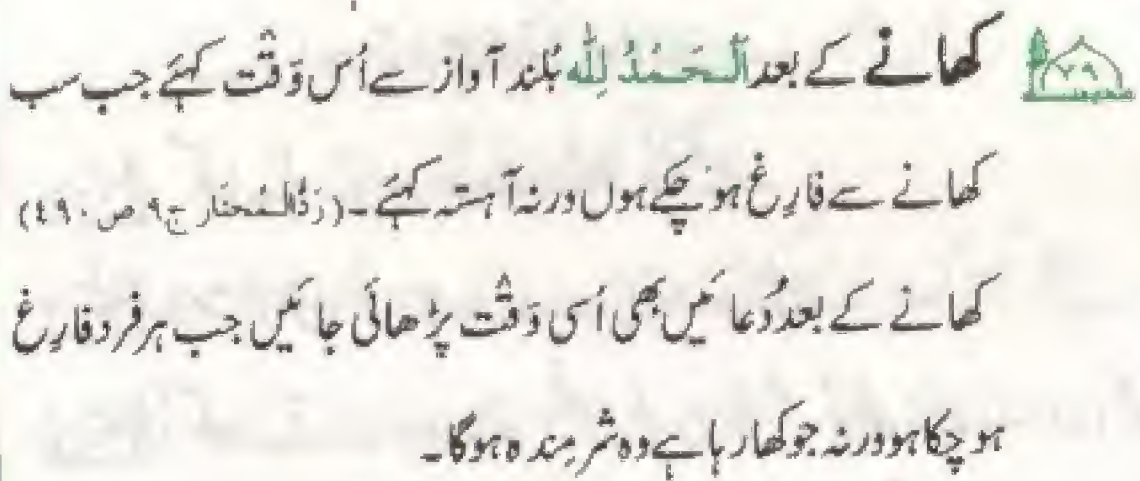 ۷۹ کھانے کے بعد اَلْحَمْدُ لِلّٰه بُلند آواز سے اُس وَقْت کہئے جب سب
کھانے سے فارِغ ہو چکے ہوں ورنہ آہستہ کہئے ۔ (رَدُّالْمُحتَار ج۹ ص ۴۹۰)
کھانے کے بعد دُعائیں بھی اُسی وَقْت پڑھائی جائیں جب ہر فرد فارِغ
ہو چکا ہو ورنہ جو کھا رہا ہے وہ شرمِندہ ہوگا۔